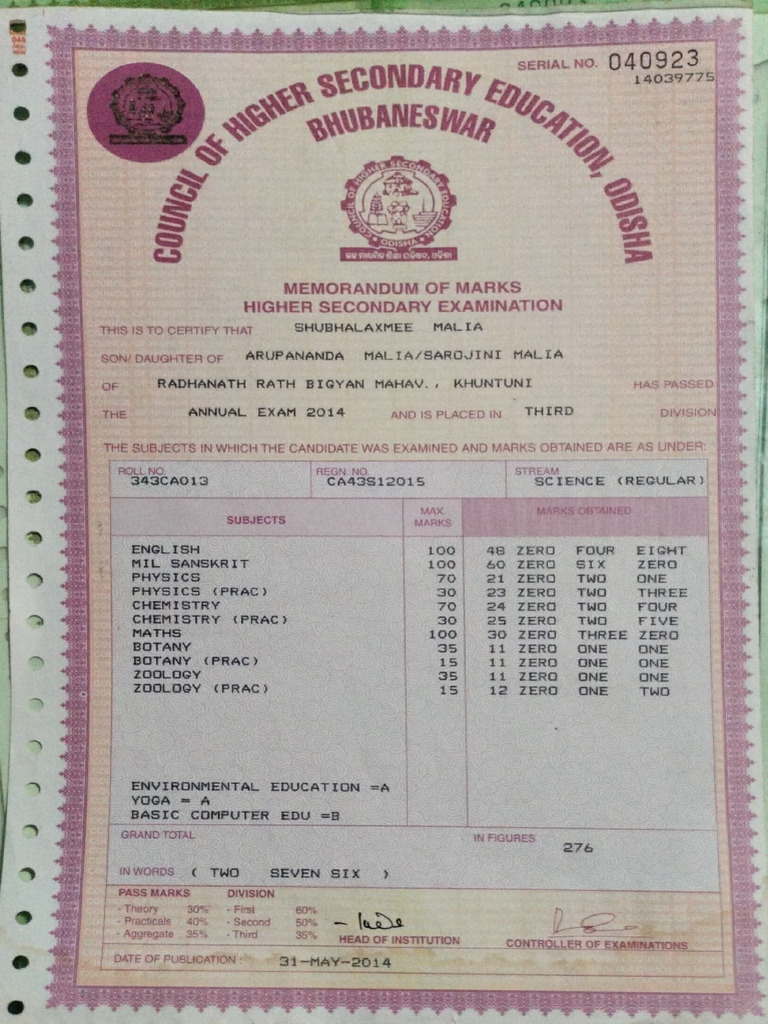 SERIAL NO. 040923
14039775
COUNCIL OF HIGHER SECONDARY EDUCATION, ODISHA
BHUBANESWAR
COUNCIL OF HIGHER SECONDARY EDUCATION
ODISHA
ଉଚ୍ଚ ମାଧ୍ୟମିକ ଶିକ୍ଷା ପରିଷଦ, ଓଡ଼ିଶା
MEMORANDUM OF MARKS
HIGHER SECONDARY EXAMINATION
THIS IS TO CERTIFY THAT SHUBHALAXMEE MALIA
SON/ DAUGHTER OF ARUPANANDA MALIA/SAROJINI MALIA
OF RADHANATH RATH BIGYAN MAHAV., KHUNTUNI HAS PASSED
THE ANNUAL EXAM 2014 AND IS PLACED IN THIRD DIVISION
THE SUBJECTS IN WHICH THE CANDIDATE WAS EXAMINED AND MARKS OBTAINED ARE AS UNDER:
ROLL NO. REGN. NO. STREAM
343CA013 CA43S12015 SCIENCE (REGULAR)
SUBJECTS MAX. MARKS MARKS OBTAINED
ENGLISH 100 48 ZERO FOUR EIGHT
MIL SANSKRIT 100 60 ZERO SIX ZERO
PHYSICS 70 21 ZERO TWO ONE
PHYSICS (PRAC) 30 23 ZERO TWO THREE
CHEMISTRY 70 24 ZERO TWO FOUR
CHEMISTRY (PRAC) 30 25 ZERO TWO FIVE
MATHS 100 30 ZERO THREE ZERO
BOTANY 35 11 ZERO ONE ONE
BOTANY (PRAC) 15 11 ZERO ONE ONE
ZOOLOGY 35 11 ZERO ONE ONE
ZOOLOGY (PRAC) 15 12 ZERO ONE TWO
ENVIRONMENTAL EDUCATION =A
YOGA = A
BASIC COMPUTER EDU =B
GRAND TOTAL IN FIGURES 276
IN WORDS ( TWO SEVEN SIX )
PASS MARKS DIVISION
- Theory 30% - First 60%
- Practicals 40% - Second 50%
- Aggregate 35% - Third 35%
HEAD OF INSTITUTION CONTROLLER OF EXAMINATIONS
DATE OF PUBLICATION : 31-MAY-2014